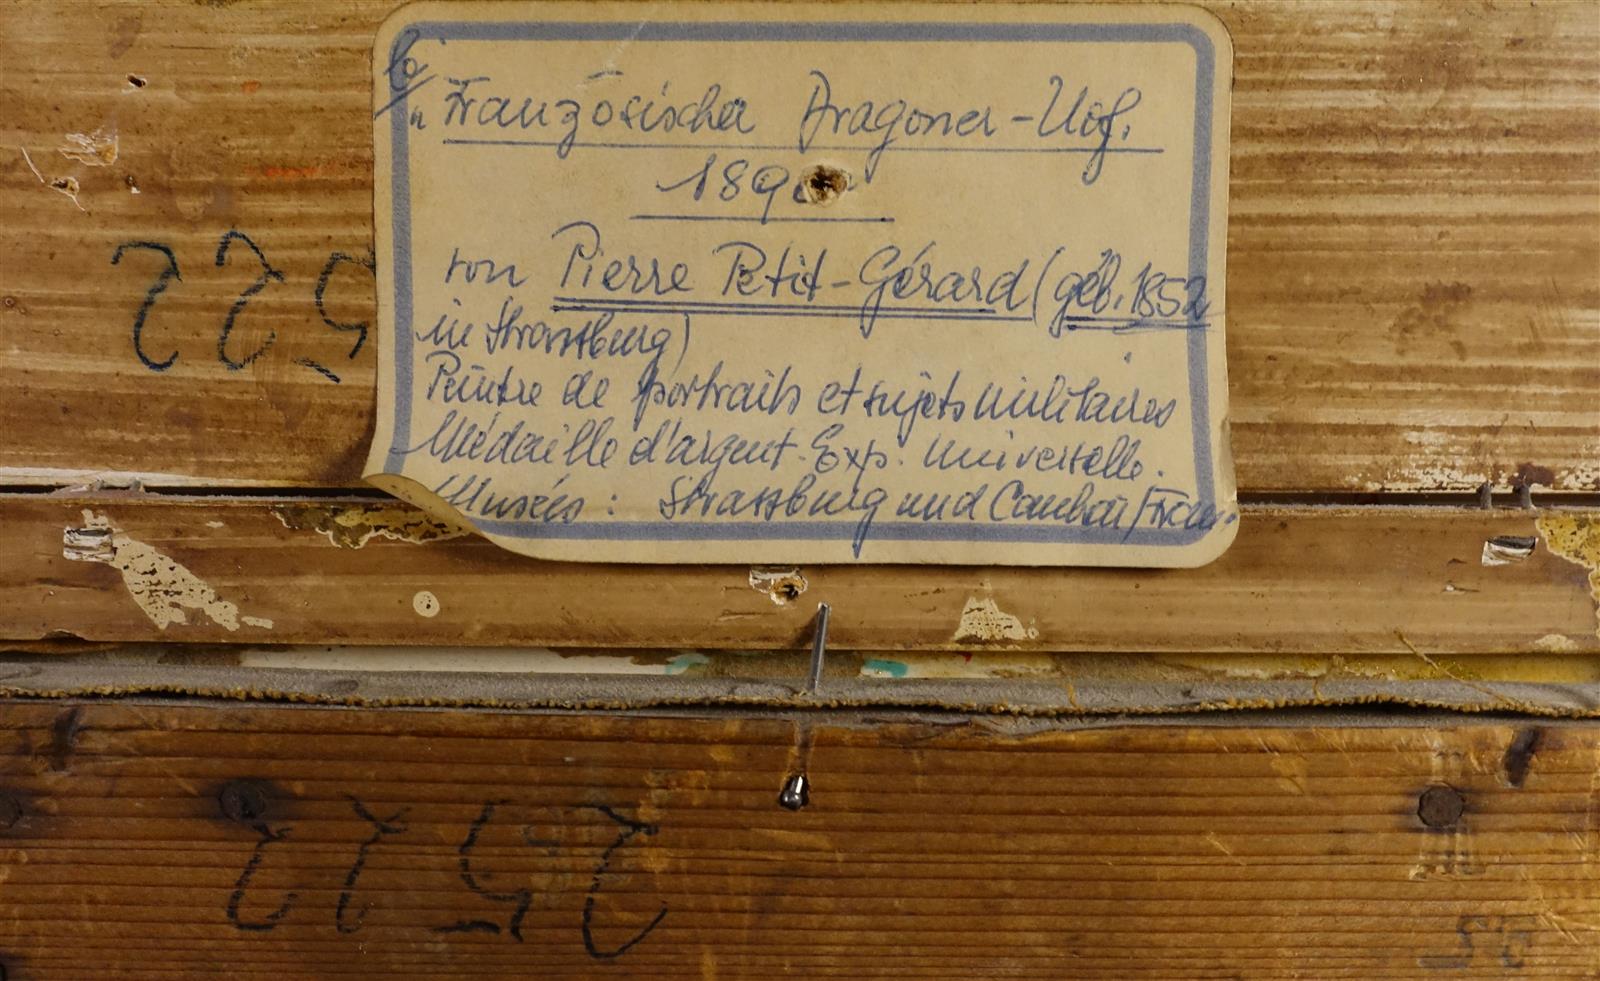 Französischer Dragoner-Uof.
189
von Pierre Petit-Gérard (geb. 1852
in Strassburg)
Peintre de portraits et sujets militaires
Médaille d'argent. Exp. Universelle.
Musées: Strassburg und
522
2522